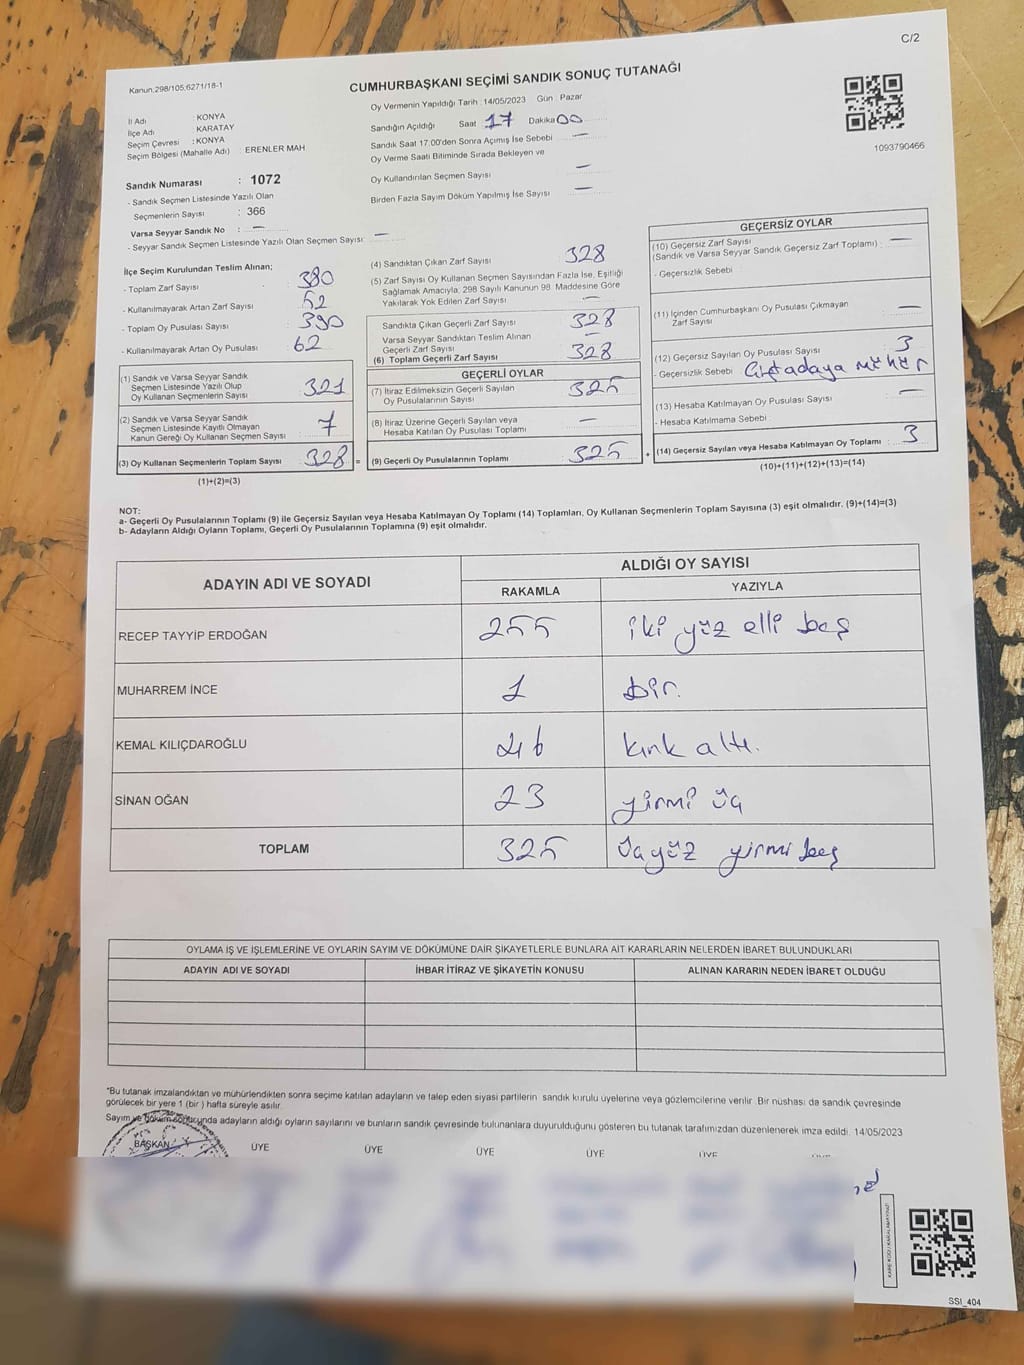 C/2
Kanun;298/105;6271/18-1
CUMHURBAŞKANI SEÇİMİ SANDIK SONUÇ TUTANAĞI
Oy Vermenin Yapıldığı Tarih : 14/05/2023 Gün : Pazar
İl Adı : KONYA
İlçe Adı : KARATAY
Seçim Çevresi : KONYA
Seçim Bölgesi (Mahalle Adı) : ERENLER MAH
Sandığın Açıldığı Saat 17 Dakika 00
Sandık Saat 17:00'den Sonra Açımış İse Sebebi —
Oy Verme Saati Bitiminde Sırada Bekleyen ve
Oy Kullandırılan Seçmen Sayısı —
Birden Fazla Sayım Döküm Yapılmış İse Sayısı —
1093790466
Sandık Numarası : 1072
- Sandık Seçmen Listesinde Yazılı Olan
Seçmenlerin Sayısı : 366
Varsa Seyyar Sandık No : —
- Seyyar Sandık Seçmen Listesinde Yazılı Olan Seçmen Sayısı: —
İlçe Seçim Kurulundan Teslim Alınan;
- Toplam Zarf Sayısı : 380
- Kullanılmayarak Artan Zarf Sayısı : 52
- Toplam Oy Pusulası Sayısı : 390
- Kullanılmayarak Artan Oy Pusulası : 62
(1) Sandık ve Varsa Seyyar Sandık
Seçmen Listesinde Yazılı Olup
Oy Kullanan Seçmenlerin Sayısı : 321
(2) Sandık ve Varsa Seyyar Sandık
Seçmen Listesinde Kayıtlı Olmayan
Kanun Gereği Oy Kullanan Seçmen Sayısı : 7
(3) Oy Kullanan Seçmenlerin Toplam Sayısı : 328 =
(1)+(2)=(3)
(4) Sandıktan Çıkan Zarf Sayısı 328
(5) Zarf Sayısı Oy Kullanan Seçmen Sayısından Fazla İse, Eşitliği
Sağlamak Amacıyla; 298 Sayılı Kanunun 98. Maddesine Göre
Yakılarak Yok Edilen Zarf Sayısı —
Sandıkta Çıkan Geçerli Zarf Sayısı 328
Varsa Seyyar Sandıktan Teslim Alınan
Geçerli Zarf Sayısı —
(6) Toplam Geçerli Zarf Sayısı 328
GEÇERLİ OYLAR
(7) İtiraz Edilmeksizin Geçerli Sayılan
Oy Pusulalarının Sayısı 325
(8) İtiraz Üzerine Geçerli Sayılan veya
Hesaba Katılan Oy Pusulası Toplamı —
(9) Geçerli Oy Pusulalarının Toplamı 325 +
GEÇERSİZ OYLAR
(10) Geçersiz Zarf Sayısı
(Sandık ve Varsa Seyyar Sandık Geçersiz Zarf Toplamı) : —
- Geçersizlik Sebebi
(11) İçinden Cumhurbaşkanı Oy Pusulası Çıkmayan
Zarf Sayısı —
(12) Geçersiz Sayılan Oy Pusulası Sayısı : 3
- Geçersizlik Sebebi Çift adaya mühür
(13) Hesaba Katılmayan Oy Pusulası Sayısı : —
- Hesaba Katılmama Sebebi
(14) Geçersiz Sayılan veya Hesaba Katılmayan Oy Toplamı : 3
(10)+(11)+(12)+(13)=(14)
NOT:
a- Geçerli Oy Pusulalarının Toplamı (9) ile Geçersiz Sayılan veya Hesaba Katılmayan Oy Toplamı (14) Toplamları, Oy Kullanan Seçmenlerin Toplam Sayısına (3) eşit olmalıdır. (9)+(14)=(3)
b- Adayların Aldığı Oyların Toplamı, Geçerli Oy Pusulalarının Toplamına (9) eşit olmalıdır.
ADAYIN ADI VE SOYADI ALDIĞI OY SAYISI
RAKAMLA YAZIYLA
RECEP TAYYİP ERDOĞAN 255 iki yüz elli beş
MUHARREM İNCE 1 bir.
KEMAL KILIÇDAROĞLU 46 kırk altı.
SİNAN OĞAN 23 yirmi üç
TOPLAM 325 üçyüz yirmi beş
OYLAMA İŞ VE İŞLEMLERİNE VE OYLARIN SAYIM VE DÖKÜMÜNE DAİR ŞİKAYETLERLE BUNLARA AİT KARARLARIN NELERDEN İBARET BULUNDUKLARI
ADAYIN ADI VE SOYADI İHBAR İTİRAZ VE ŞİKAYETİN KONUSU ALINAN KARARIN NEDEN İBARET OLDUĞU
*Bu tutanak imzalandıktan ve mühürlendikten sonra seçime katılan adayların ve talep eden siyasi partilerin sandık kurulu üyelerine veya gözlemcilerine verilir. Bir nüshası da sandık çevresinde
görülecek bir yere 1 (bir) hafta süreyle asılır.
Sayım ve döküm sonucunda adayların aldığı oyların sayılarını ve bunların sandık çevresinde bulunanlara duyurulduğunu gösteren bu tutanak tarafımızdan düzenlenerek imza edildi. 14/05/2023
BAŞKAN ÜYE ÜYE ÜYE ÜYE ÜYE
SSI_404